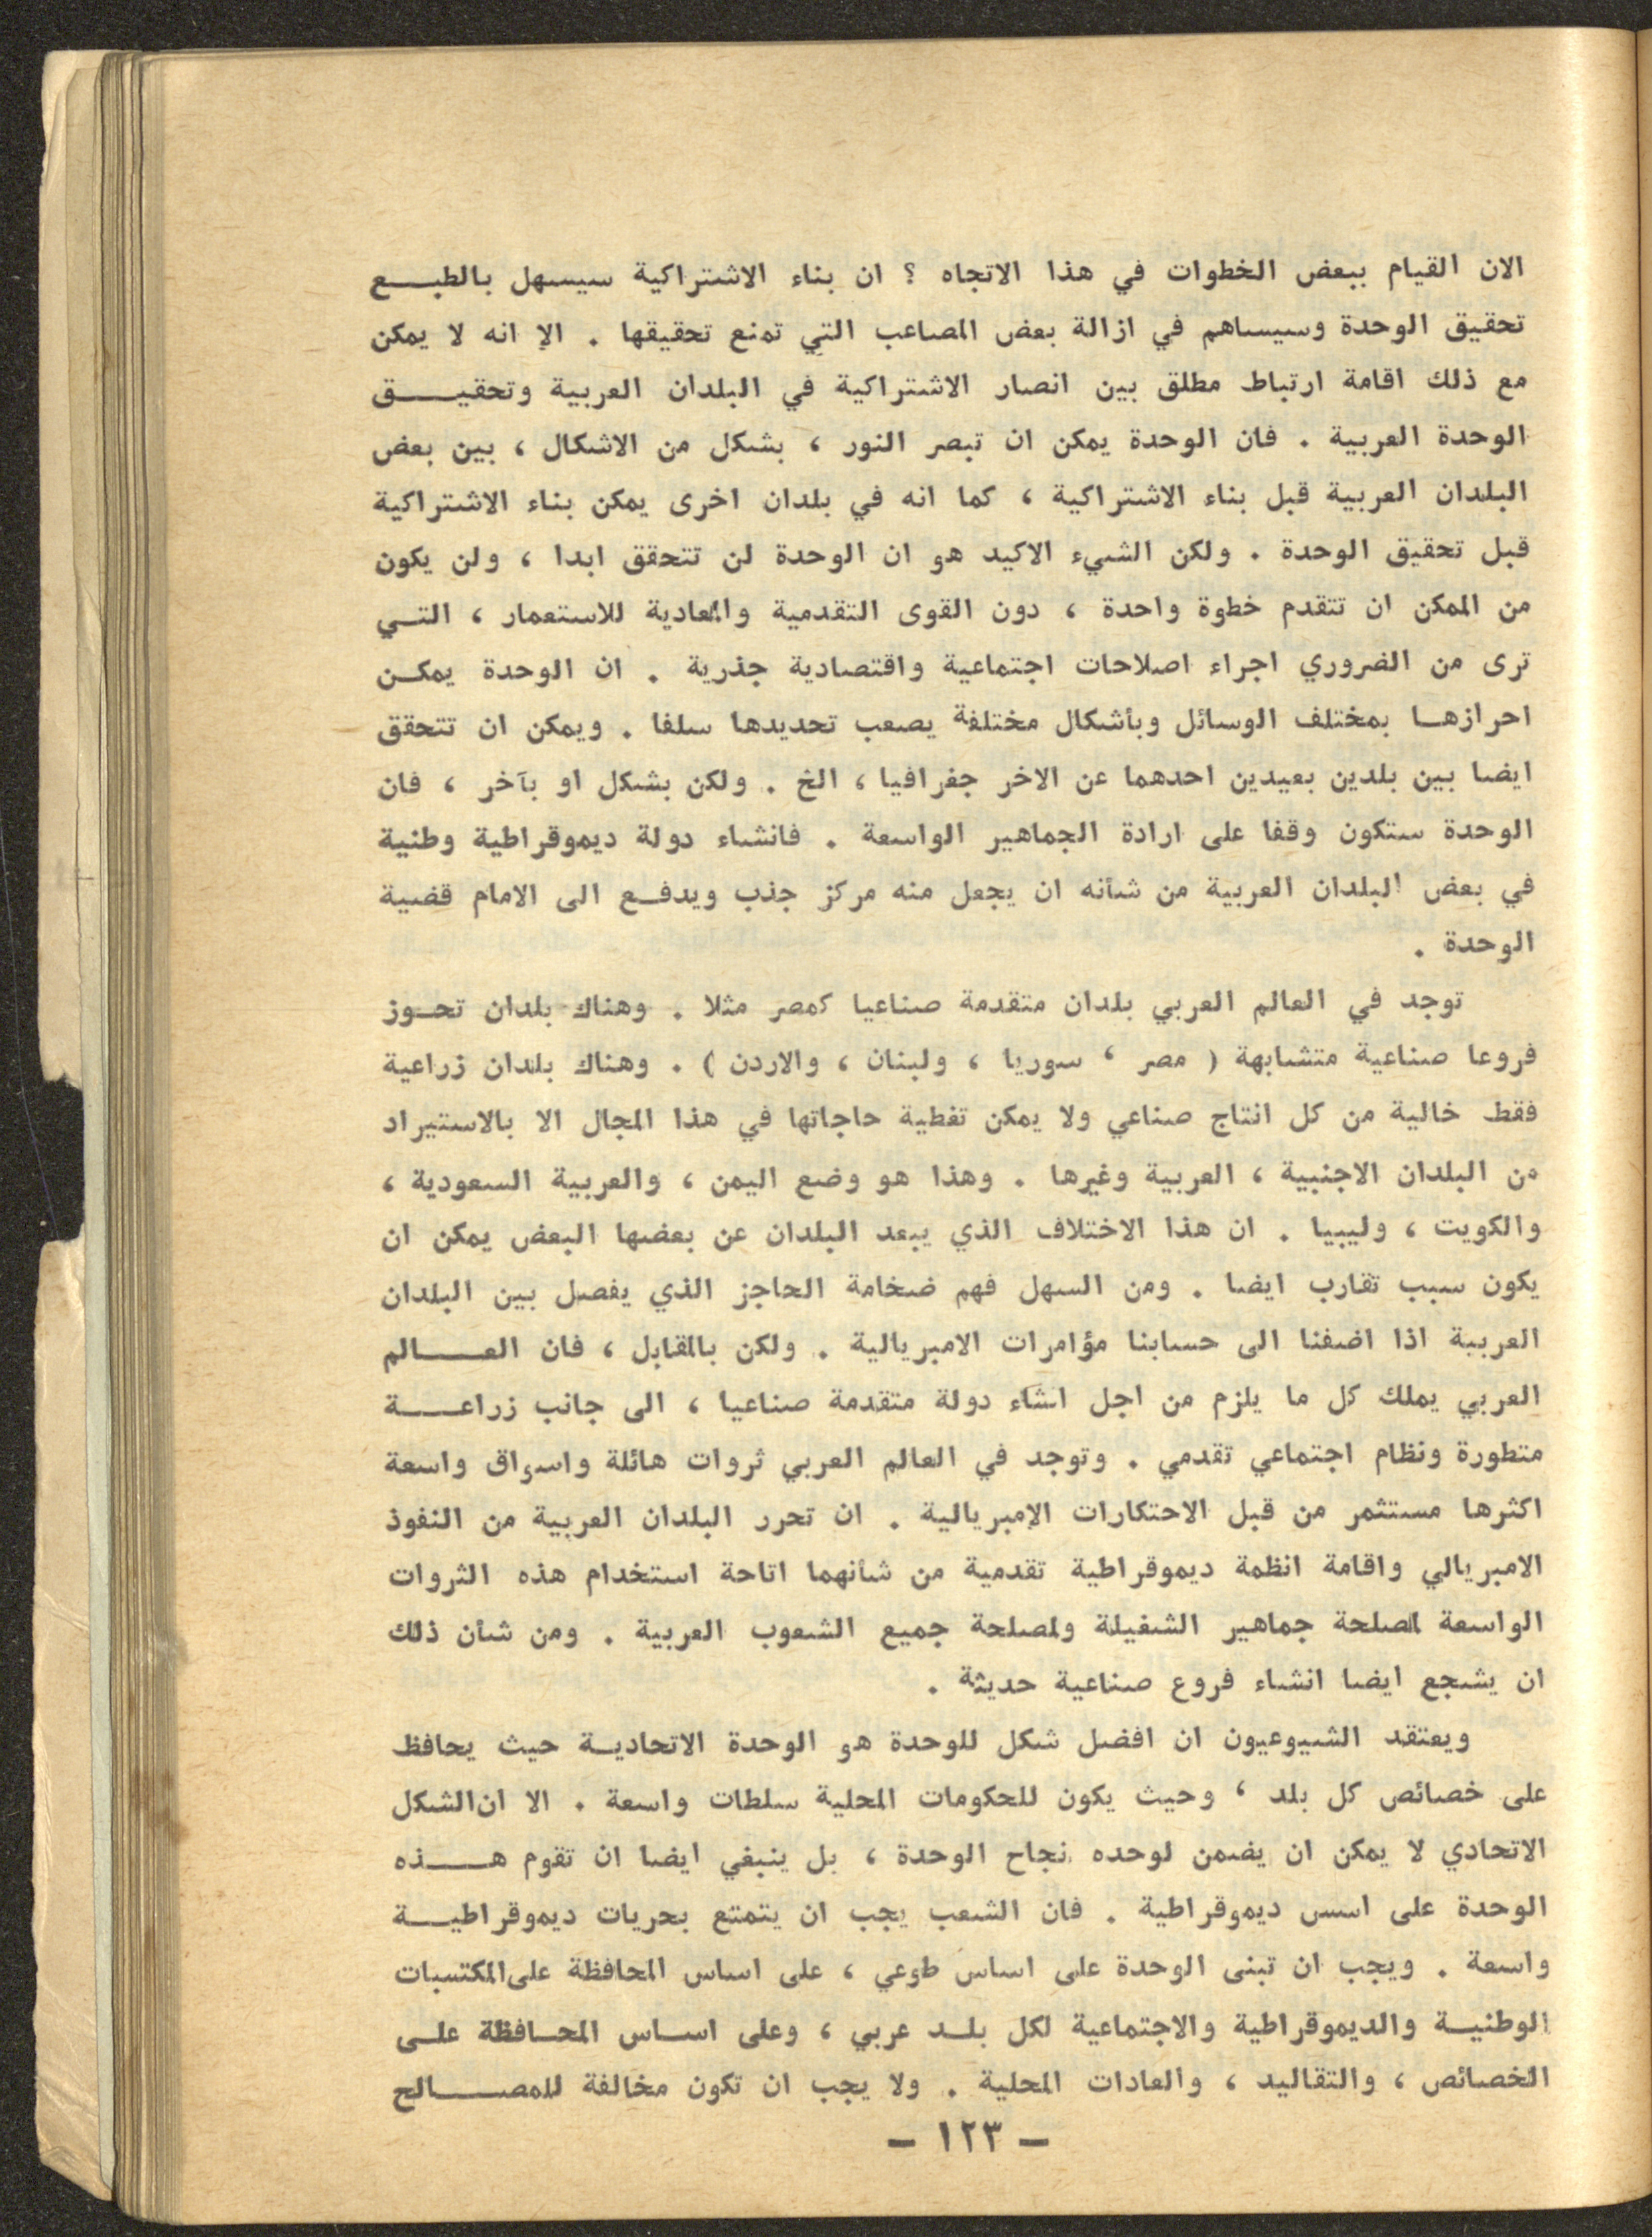 الان القيام ببعض الخطوات في هذا الاتجاه ؟ ان بناء الاشتراكية سيسهل بالطبـــع
تحقيق الوحدة وسيساهم في ازالة بعض المصاعب التي تمنع تحقيقها . الا انه لا يمكن
مع ذلك اقامة ارتباط مطلق بين انصار الاشتراكية في البلدان العربية وتحقيـــق
الوحدة العربية . فان الوحدة يمكن ان تبصر النور ، بشكل من الاشكال ، بين بعض
البلدان العربية قبل بناء الاشتراكية ، كما انه في بلدان اخرى يمكن بناء الاشتراكية
قبل تحقيق الوحدة . ولكن الشيء الاكيد هو ان الوحدة لن تتحقق ابدا ، ولن يكون
من الممكن ان تتقدم خطوة واحدة ، دون القوى التقدمية والمعادية للاستعمار ، التـي
ترى من الضروري اجراء اصلاحات اجتماعية واقتصادية جذرية . ان الوحدة يمكـن
احرازهـا بمختلف الوسائل وبأشكال مختلفة يصعب تحديدها سلفا . ويمكن ان تتحقق
ايضا بين بلدين بعيدين احدهما عن الاخر جغرافيا ، الخ . ولكن بشكل او بآخر ، فان
الوحدة ستكون وقفا على ارادة الجماهير الواسعة . فانشاء دولة ديموقراطية وطنية
في بعض البلدان العربية من شأنه ان يجعل منه مركز جذب ويدفـع الى الامام قضية
الوحدة .
توجد في العالم العربي بلدان متقدمة صناعيا كمصر مثلا . وهناك بلدان تحـوز
فروعا صناعية متشابهة ( مصر ، سوريا ، ولبنان ، والاردن ) . وهناك بلدان زراعية
فقط خالية من كل انتاج صناعي ولا يمكن تغطية حاجاتها في هذا المجال الا بالاستيراد
من البلدان الاجنبية ، العربية وغيرها . وهذا هو وضع اليمن ، والعربية السعودية ،
والكويت ، وليبيا . ان هذا الاختلاف الذي يبعد البلدان عن بعضها البعض يمكن ان
يكون سبب تقارب ايضا . ومن السهل فهم ضخامة الحاجز الذي يفصل بين البلدان
العربية اذا اضفنا الى حسابنا مؤامرات الامبريالية . ولكن بالمقابل ، فان العـــالم
العربي يملك كل ما يلزم من اجل انشاء دولة متقدمة صناعيا ، الى جانب زراعـــة
متطورة ونظام اجتماعي تقدمي . وتوجد في العالم العربي ثروات هائلة واسواق واسعة
اكثرها مستثمر من قبل الاحتكارات الامبريالية . ان تحرر البلدان العربية من النفوذ
الامبريالي واقامة انظمة ديموقراطية تقدمية من شأنهما اتاحة استخدام هذه الثروات
الواسعة لمصلحة جماهير الشغيلة ولمصلحة جميع الشعوب العربية . ومن شأن ذلك
ان يشجع ايضا انشاء فروع صناعية حديثة .
ويعتقد الشيوعيون ان افضل شكل للوحدة هو الوحدة الاتحاديـة حيث يحافظ
على خصائص كل بلد ، وحيث يكون للحكومات المحلية سلطات واسعة . الا ان الشكل
الاتحادي لا يمكن ان يضمن لوحده نجاح الوحدة ، بل ينبغي ايضا ان تقوم هـــذه
الوحدة على اسس ديموقراطية . فان الشعب يجب ان يتمتع بحريات ديموقراطيـــة
واسعة . ويجب ان تبنى الوحدة على اساس طوعي ، على اساس المحافظة على المكتسبات
الوطنيـة والديموقراطية والاجتماعية لكل بلـد عربي ، وعلى اسـاس المحـافظة علـى
الخصائص ، والتقاليد ، والعادات المحلية . ولا يجب ان تكون مخالفة للمصـــالح
– ١٢٣ –